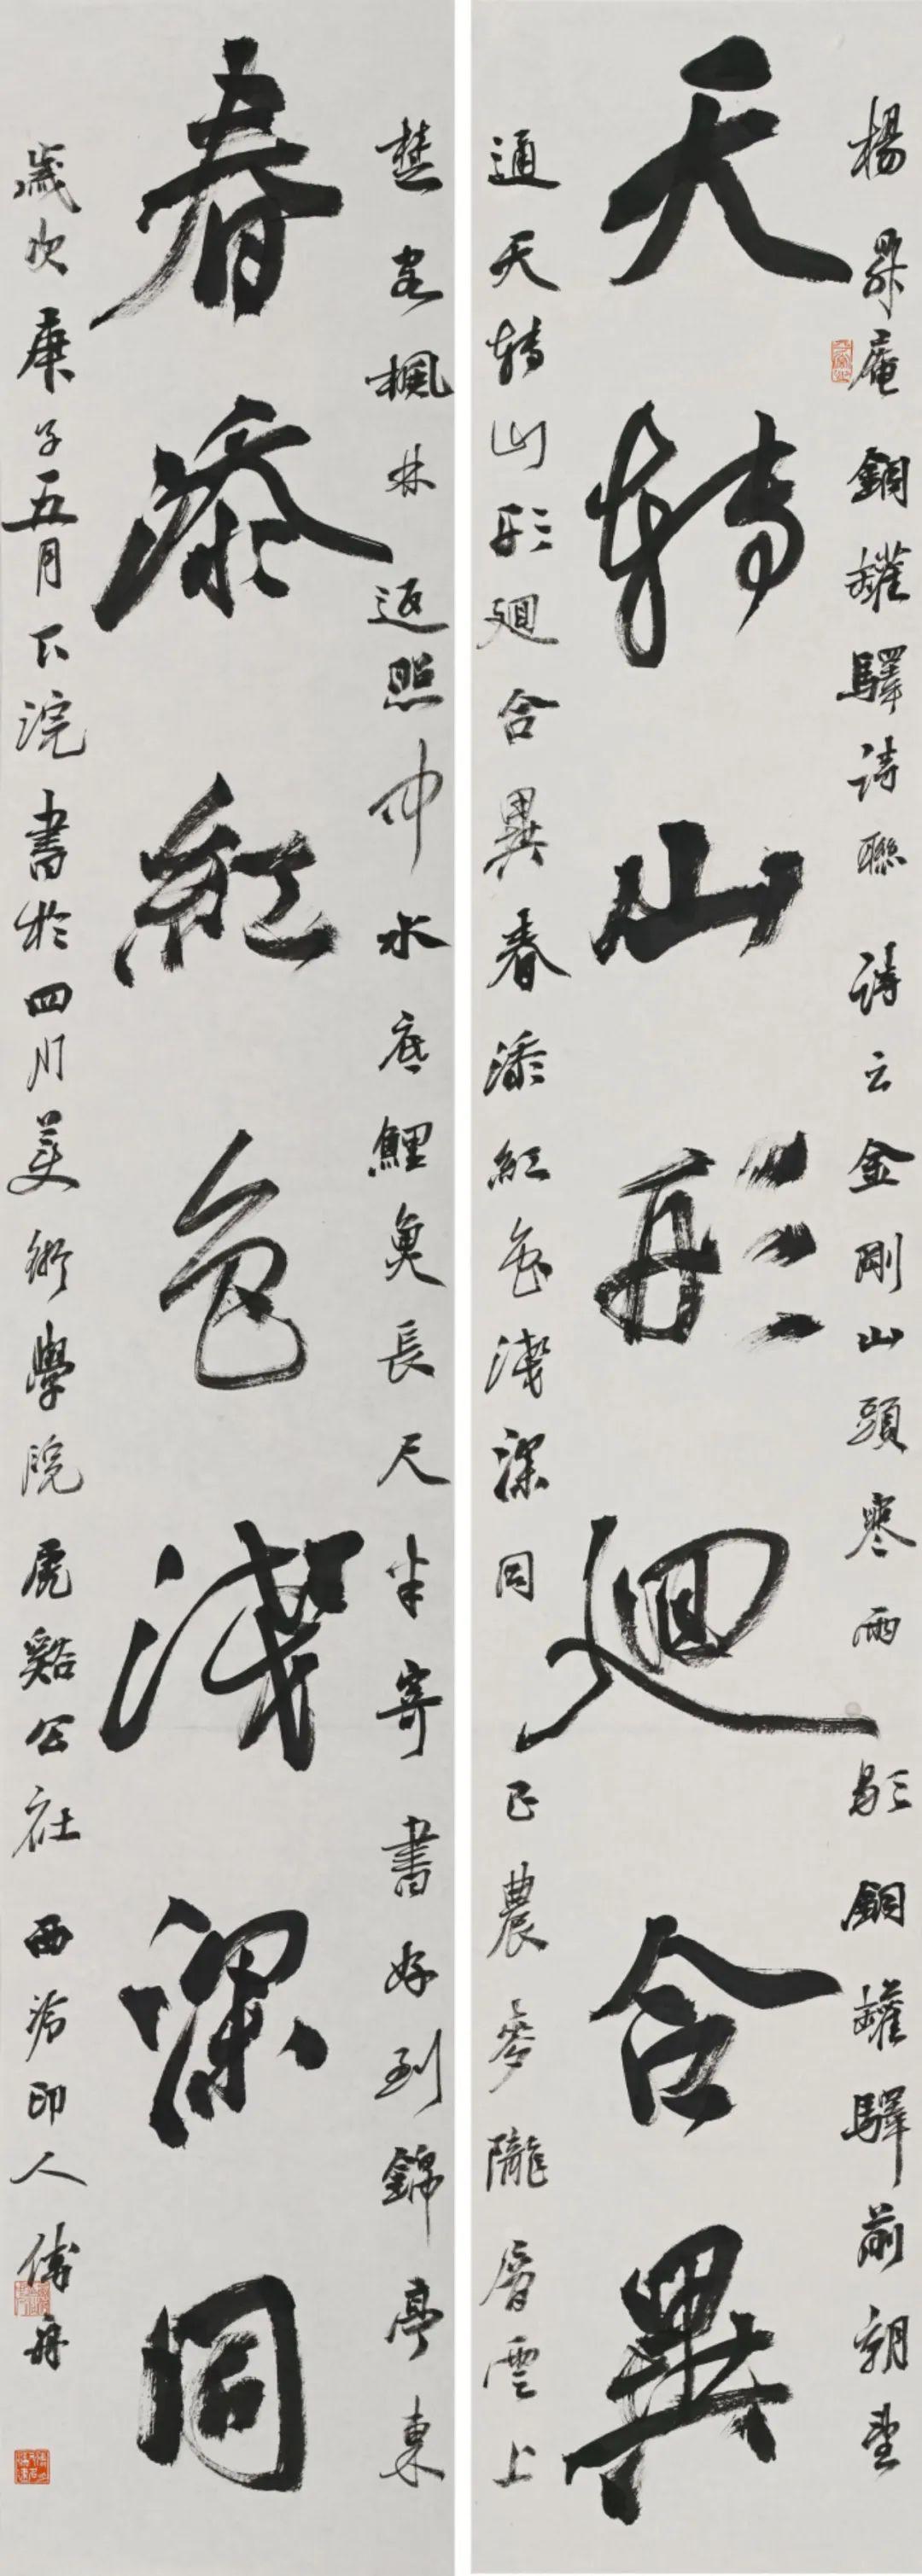 楊昇庵銅罐驛詩聯 詩云金剛山頭寒雨歇銅罐驛前朝望
天轉山形廻合異
通天轉山形廻合異春添紅色淺深同 已農麥隴屑雲上
楚客楓林返照中水底鯉魚長尺半寄書好到錦亭東
春添紅色淺深同
歲次庚子五月下浣書於四川美術學院虎谿公社 西泠印人傅舟